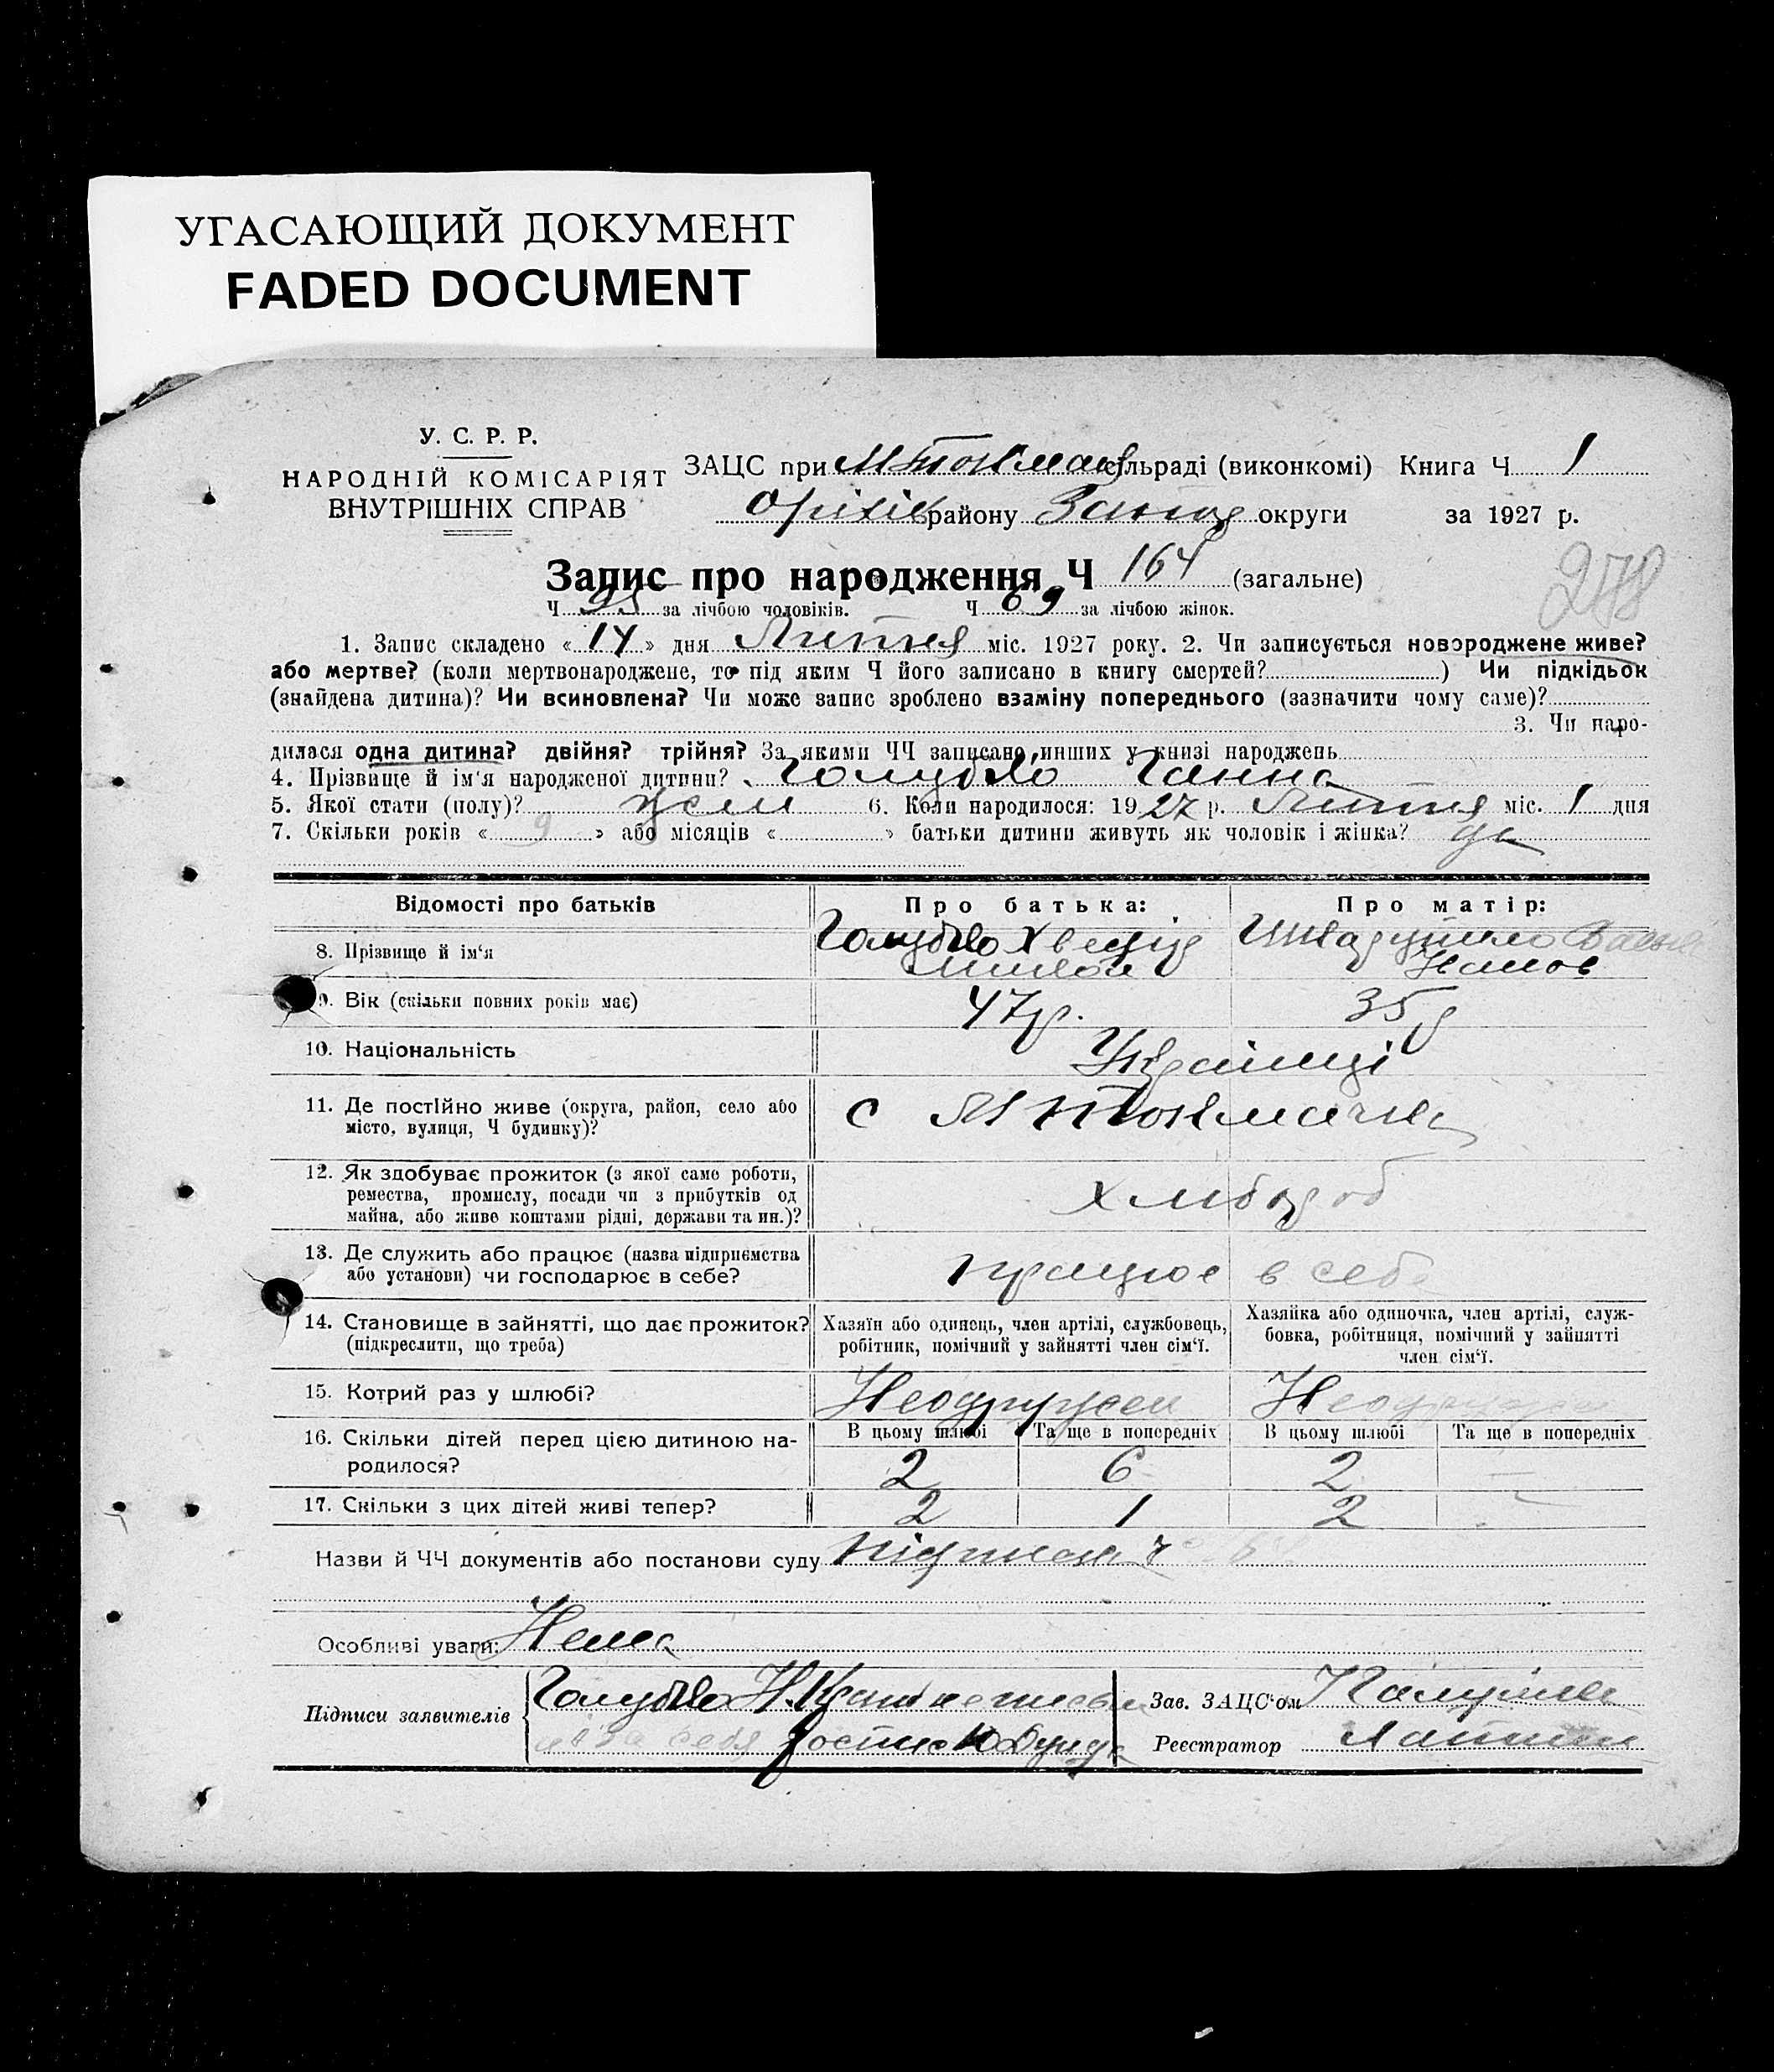 УГАСАЮЩИЙ ДОКУМЕНТ
FADED DOCUMENT
У. С. Р. Р.
НАРОДНІЙ КОМІСАРІЯТ
ВНУТРІШНІХ СПРАВ
ЗАЦС при М Токмац сільраді (виконкомі) Книга Ч 1
Оріхів району Запор округи за 1927 р.
Запис про народження Ч 164 (загальне)
278
Ч 95 за лічбою чоловіків. Ч 69 за лічбою жінок.
1. Запис складено « 14 » дня Липня міс. 1927 року. 2. Чи записується новороджене живе?
або мертве? (коли мертвонароджене, то під яким Ч його записано в книгу смертей? ) Чи підкідьок
(знайдена дитина)? Чи всиновлена? Чи може запис зроблено взаміну попереднього (зазначити чому саме)?
3. Чи наро-
дилася одна дитина? двійня? трійня? За якими ЧЧ записано инших у книзі народжень
4. Прізвище й ім'я народженої дитини? Голубко Ганна
5. Якої стати (полу)? жен 6. Коли народилося: 1927 р. Липня міс. 1 дня
7. Скільки років « 9 » або місяців « » батьки дитини живуть як чоловік і жінка? да
Відомості про батьків Про батька: Про матір:
8. Прізвище й ім'я Голубко Хведір
9. Вік (скільки повних років має) 47 р. 35 р
10. Національність Українці
11. Де постійно живе (округа, район, село або
місто, вулиця, Ч будинку)? с М Токмачка
12. Як здобуває прожиток (з якої саме роботи,
ремества, промислу, посади чи з прибутків од
майна, або живе коштами рідні, держави та ин.)? Хлібороб
13. Де служить або працює (назва підприємства
або установи) чи господарює в себе? працює в себе
14. Становище в зайнятті, що дає прожиток?
(підкреслити, що треба)
Хазяїн або одинець, член артілі, службовець,
робітник, помічний у зайнятті член сім'ї.
Хазяйка або одиночка, член артілі, служ-
бовка, робітниця, помічний у зайнятті
член сім'ї.
15. Котрий раз у шлюбі?
16. Скільки дітей перед цією дитиною на-
родилося?
В цьому шлюбі Та ще в попередніх В цьому шлюбі Та ще в попередніх
2 6 2 —
17. Скільки з цих дітей живі тепер? 2 1 2 -
Назви й ЧЧ документів або постанови суду
Особливі уваги: Нема
Підписи заявителів Голубко Н.
Зав. ЗАЦС'ом
Реєстратор